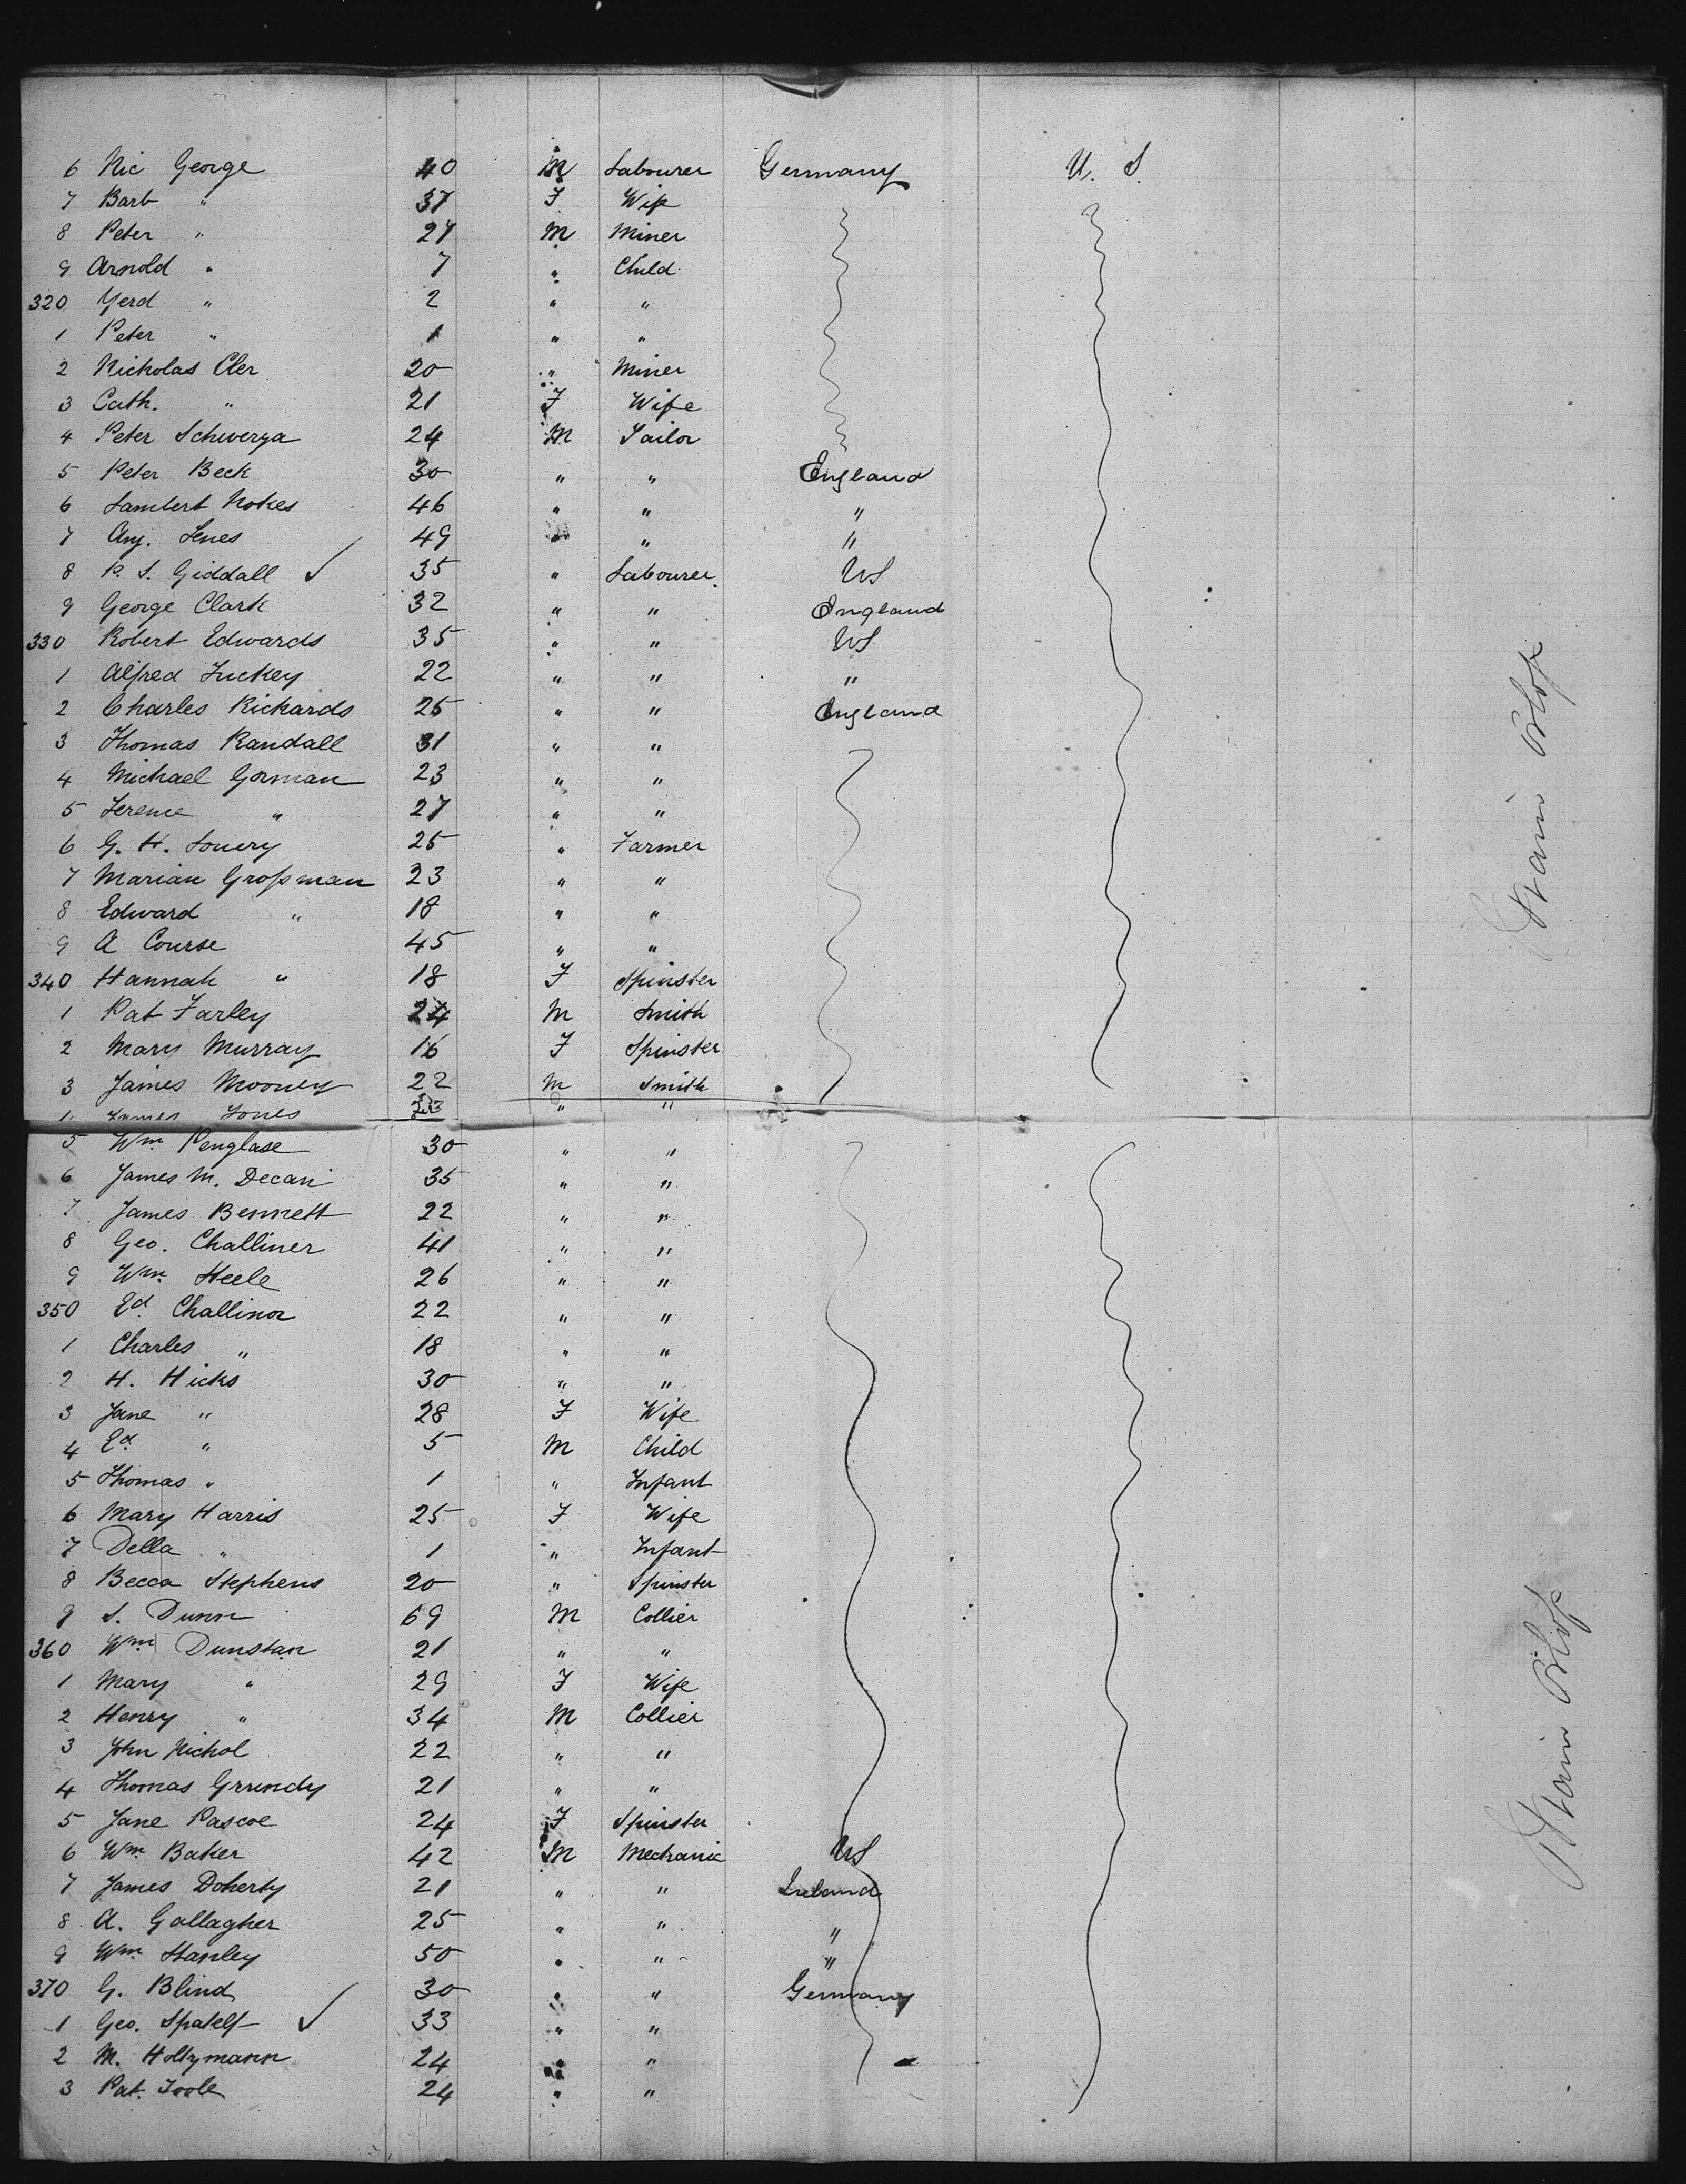 6 Nic George 40 M Labourer Germany U. S.
7 Barb " 37 F Wife
8 Peter " 27 M Miner
9 Arnold " 7 " Child
320 Gerd " 2 " "
1 Peter " 1 " "
2 Nicholas Cler 20 " Miner
3 Cath. " 21 F Wife
4 Peter Schwerga 24 M Tailor
5 Peter Beck 30 " " England
6 Lambert Nokes 46 " " "
7 Ang. Lenes 49 " " "
8 P. S. Giddall ✓ 35 " Labourer US
9 George Clark 32 " " England
330 Robert Edwards 35 " " US
1 Alfred Tuckey 22 " " "
2 Charles Rickards 25 " " England
3 Thomas Randall 31 " "
4 Michael Gorman 23 " "
5 Terence " 27 " "
6 G. H. Louery 25 " Farmer
7 Marian Grossman 23 " "
8 Edward " 18 " "
9 A Course 45 " "
340 Hannah " 18 F Spinster
1 Pat Farley 24 M Smith
2 Mary Murray 16 F Spinster
3 James Mooney 22 M Smith
4 James Jones 23 " "
5 Wm Penglase 30 " "
6 James M. Decari 35 " "
7 James Bennett 22 " "
8 Geo. Challiner 41 " "
9 Wm. Steele 26 " "
350 Ed Challinor 22 " "
1 Charles " 18 " "
2 H. Hicks 30 " "
3 Jane " 28 F Wife
4 Ed " 5 M Child
5 Thomas " 1 " Infant
6 Mary Harris 25 F Wife
7 Della " 1 " Infant
8 Becca Stephens 20 " Spinster
9 S. Dunn 69 M Collier
360 Wm Dunstan 21 " "
1 Mary " 29 F Wife
2 Henry " 34 M Collier
3 John Nichol 22 " "
4 Thomas Grundy 21 " "
5 Jane Pascoe 24 F Spinster
6 Wm. Baker 42 M Mechanic US
7 James Doherty 21 " " Ireland
8 A. Gallagher 25 " " "
9 Wm Stanley 50 " " "
370 G. Blind 30 " " Germany
1 Geo. Spatelf ✓ 33 " "
2 M. Holtzmann 24 " "
3 Pat. Toole 24 " "